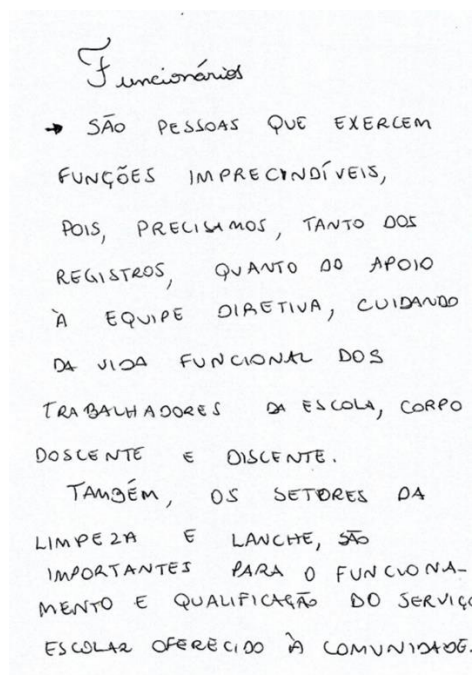 Funcionários
→ SÃO PESSOAS QUE EXERCEM
FUNÇÕES IMPRECINDÍVEIS,
POIS, PRECISAMOS, TANTO DOS
REGISTROS, QUANTO DO APOIO
À EQUIPE DIRETIVA, CUIDANDO
DA VIDA FUNCIONAL DOS
TRABALHADORES DA ESCOLA, CORPO
DOSCENTE E DISCENTE.
TAMBÉM, OS SETORES DA
LIMPEZA E LANCHE, SÃO
IMPORTANTES PARA O FUNCIONA-
MENTO E QUALIFICAÇÃO DO SERVIÇO
ESCOLAR OFERECIDO À COMUNIDADE.